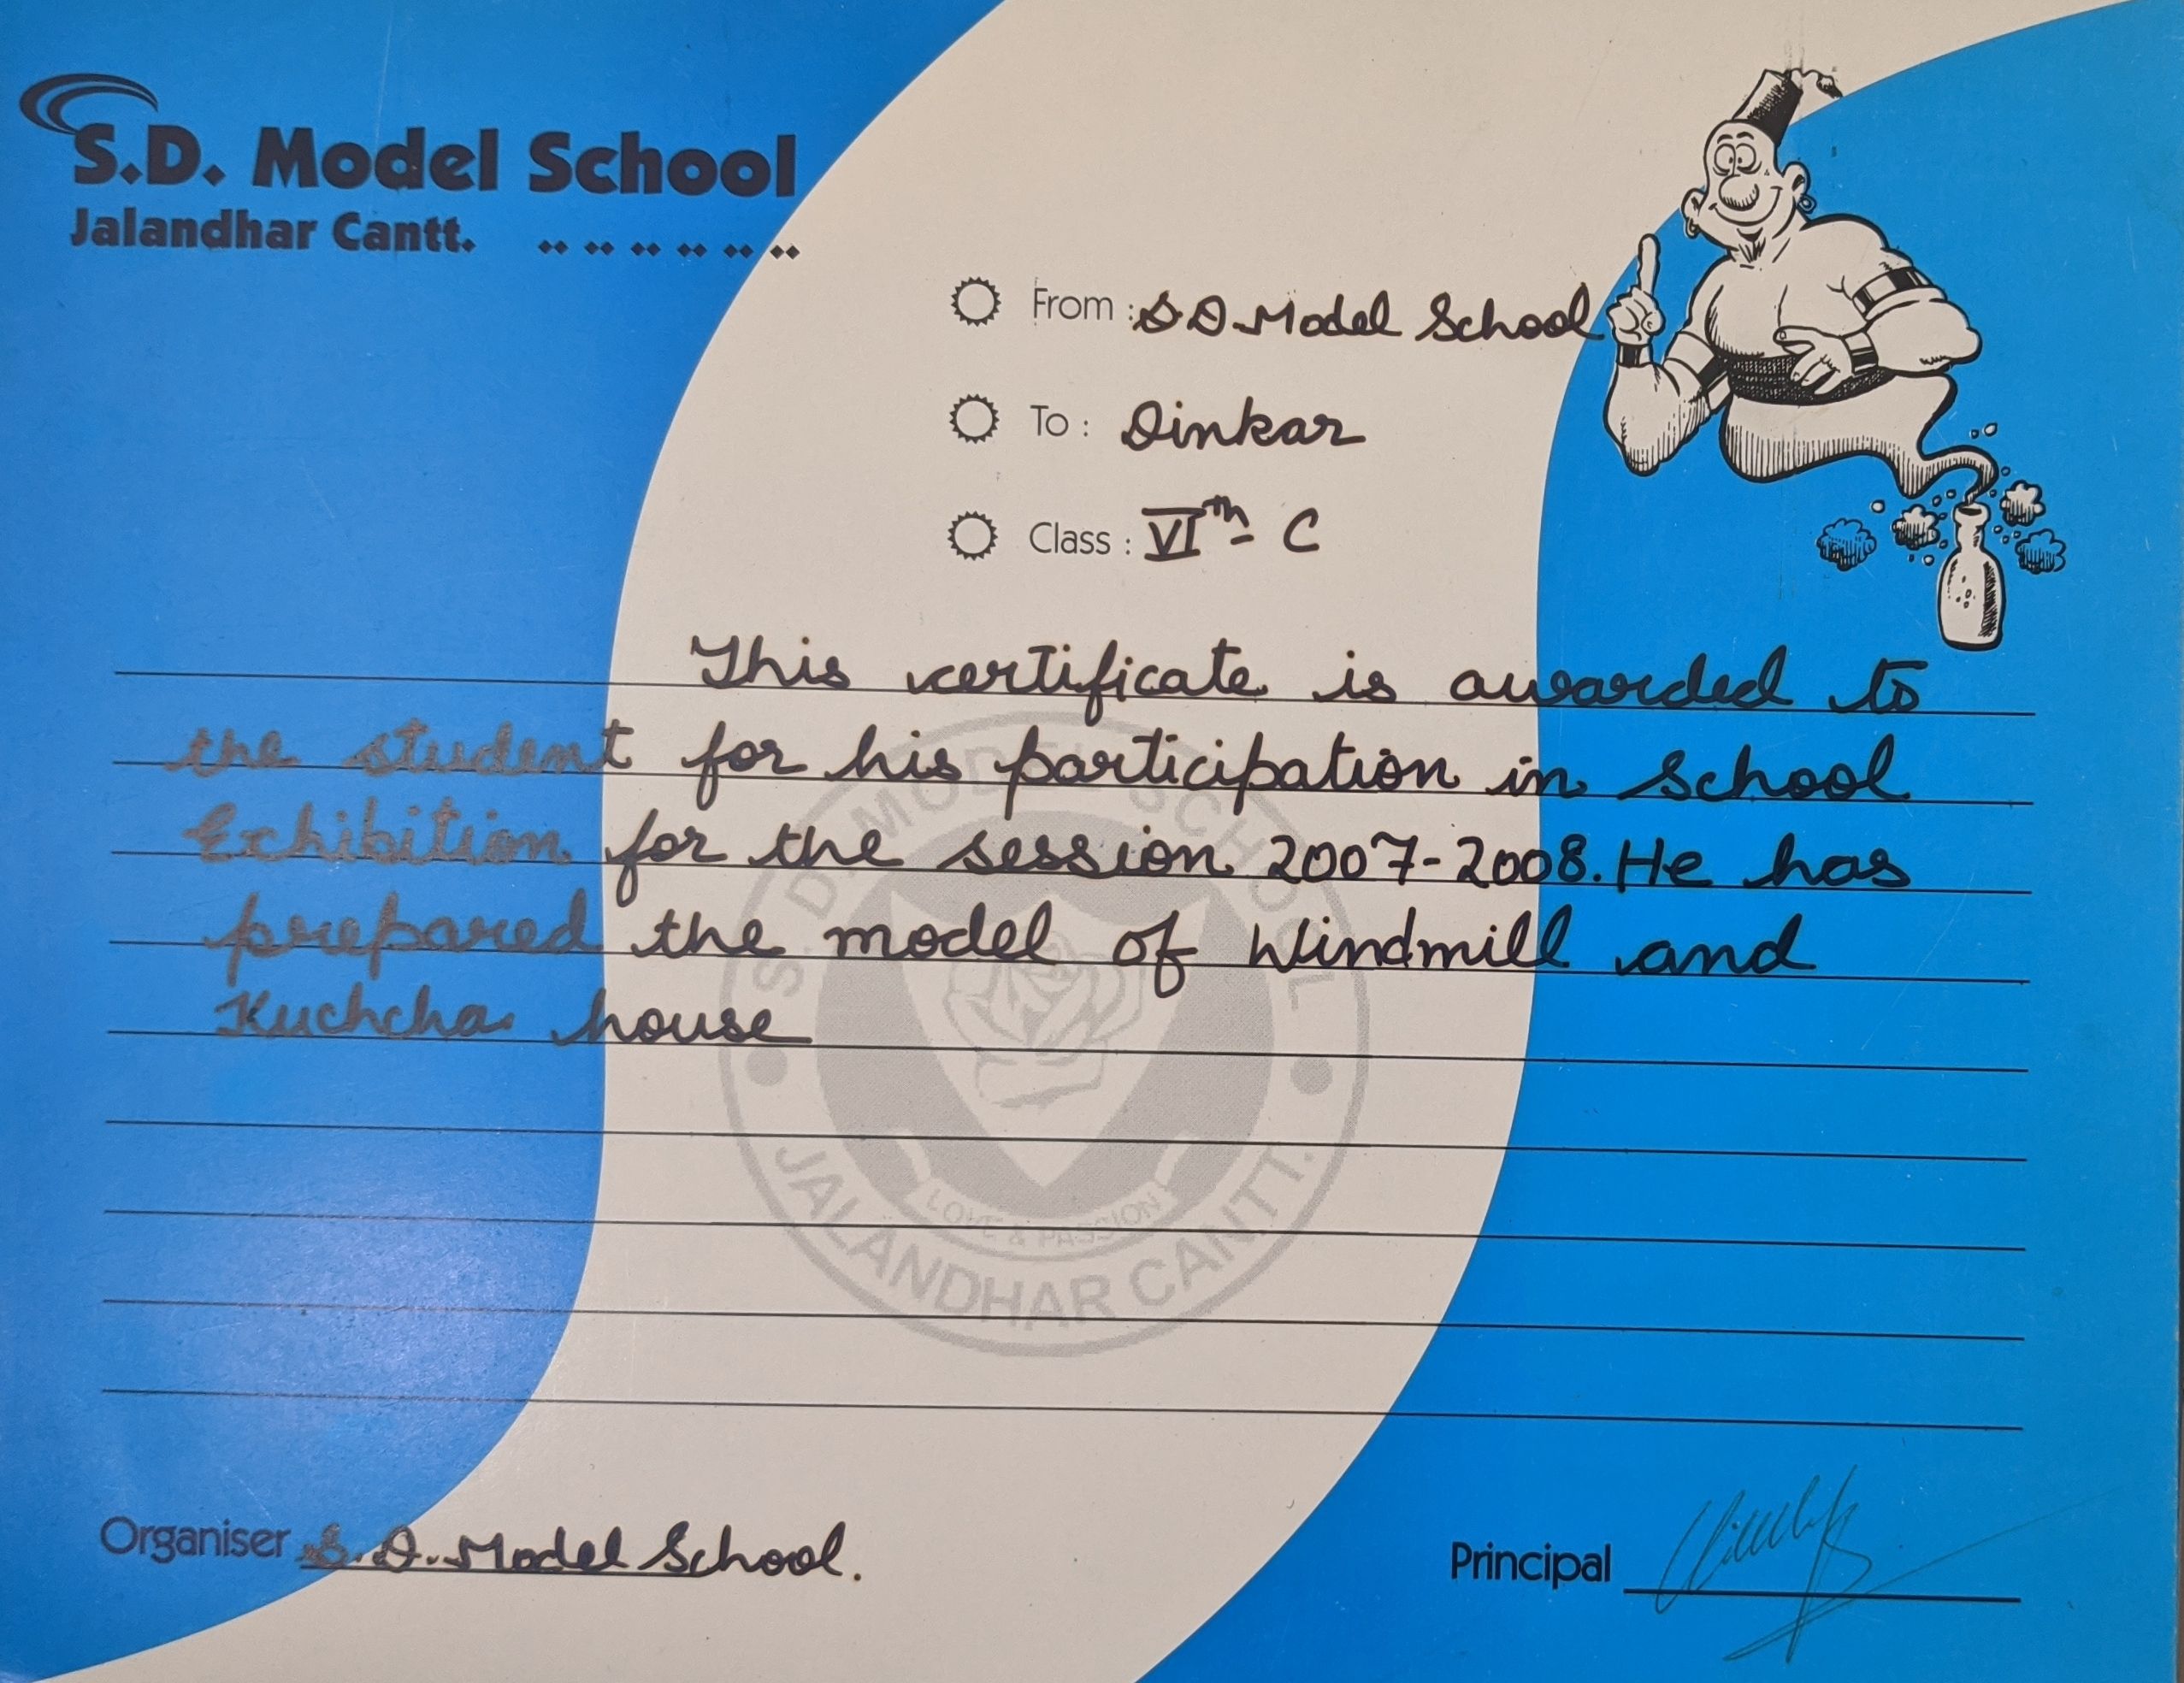 S.D. Model School
Jalandhar Cantt.
From : S.D. Model School
To : Dinkar
Class : VIth - C
This certificate is awarded to
the student for his participation in School
Exhibition for the session 2007-2008. He has
prepared the model of Windmill and
Kuchcha house
S.D. MODEL SCHOOL
LOVE & PASSION
JALANDHAR CANTT.
Organiser S.D. Model School.
Principal